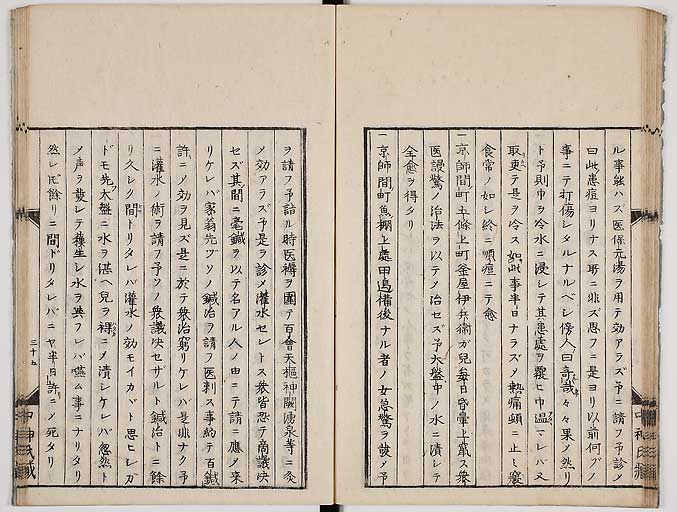 ル事能ハズ医保元湯ヲ用テ効アラズ予ニ請フ予診〆
曰此患痘ヨリナス所ニ非ズ思フニ是ヨリ以前何ゾノ
事ニテ打傷レタルナルベシ傍人曰奇哉々々果ノ然リ
ト予則巾ヲ冷水ニ浸レテ其患處ヲ覆ヒ巾温マレバ又
取更テ是ヲ冷ス如此事半日ナラズ〆熱痛頓ニ止ミ寝
食常ノ如レ終ニ順痘ニテ愈
一京師間町五條上町釜屋伊兵衛ガ兒毎日昏暈上竄ス衆
医謾驚ノ治法ヲ以テノ治セズ予大盤中ノ水ニ漬レテ
全愈ヲ得タリ
一京師間町魚棚上處甲邉備後ナル者ノ女急驚ヲ發ノ予
ヲ請フ予詣ル時医褥ヲ圍テ百會天樞神闕湧泉等ニ灸
〆効アラズ予是ヲ診〆灌水セレトス衆皆恐テ商議决
セズ其間ニ毫鍼ヲ以テ名アル人ノ由ニテ請ニ應〆来
リケレバ家翁先ヅソノ鍼治ヲ請フ医刺ス事約テ百鍼
許ニ〆効ヲ見ズ是ニ於テ衆治窮リケレバ是非ナク予
ニ灌水ノ術ヲ請フ予ソノ衆議决セザルト鍼治トニ餘
リ久レク間トリタレバ灌水ノ効モイカヾト思ヒレガ
ドモ先大盤ニ水ヲ湛ヘ兒ヲ裸ニ〆漬シケレバ忽然ト
〆声ヲ發レテ蘓生レ水ヲ與フレバ嚥ム事ニナリタリ
然レ𪜈餘リニ間ドリタレバニヤ半日許ニ〆死タリ
三十五
中神氏蔵
中神氏蔵